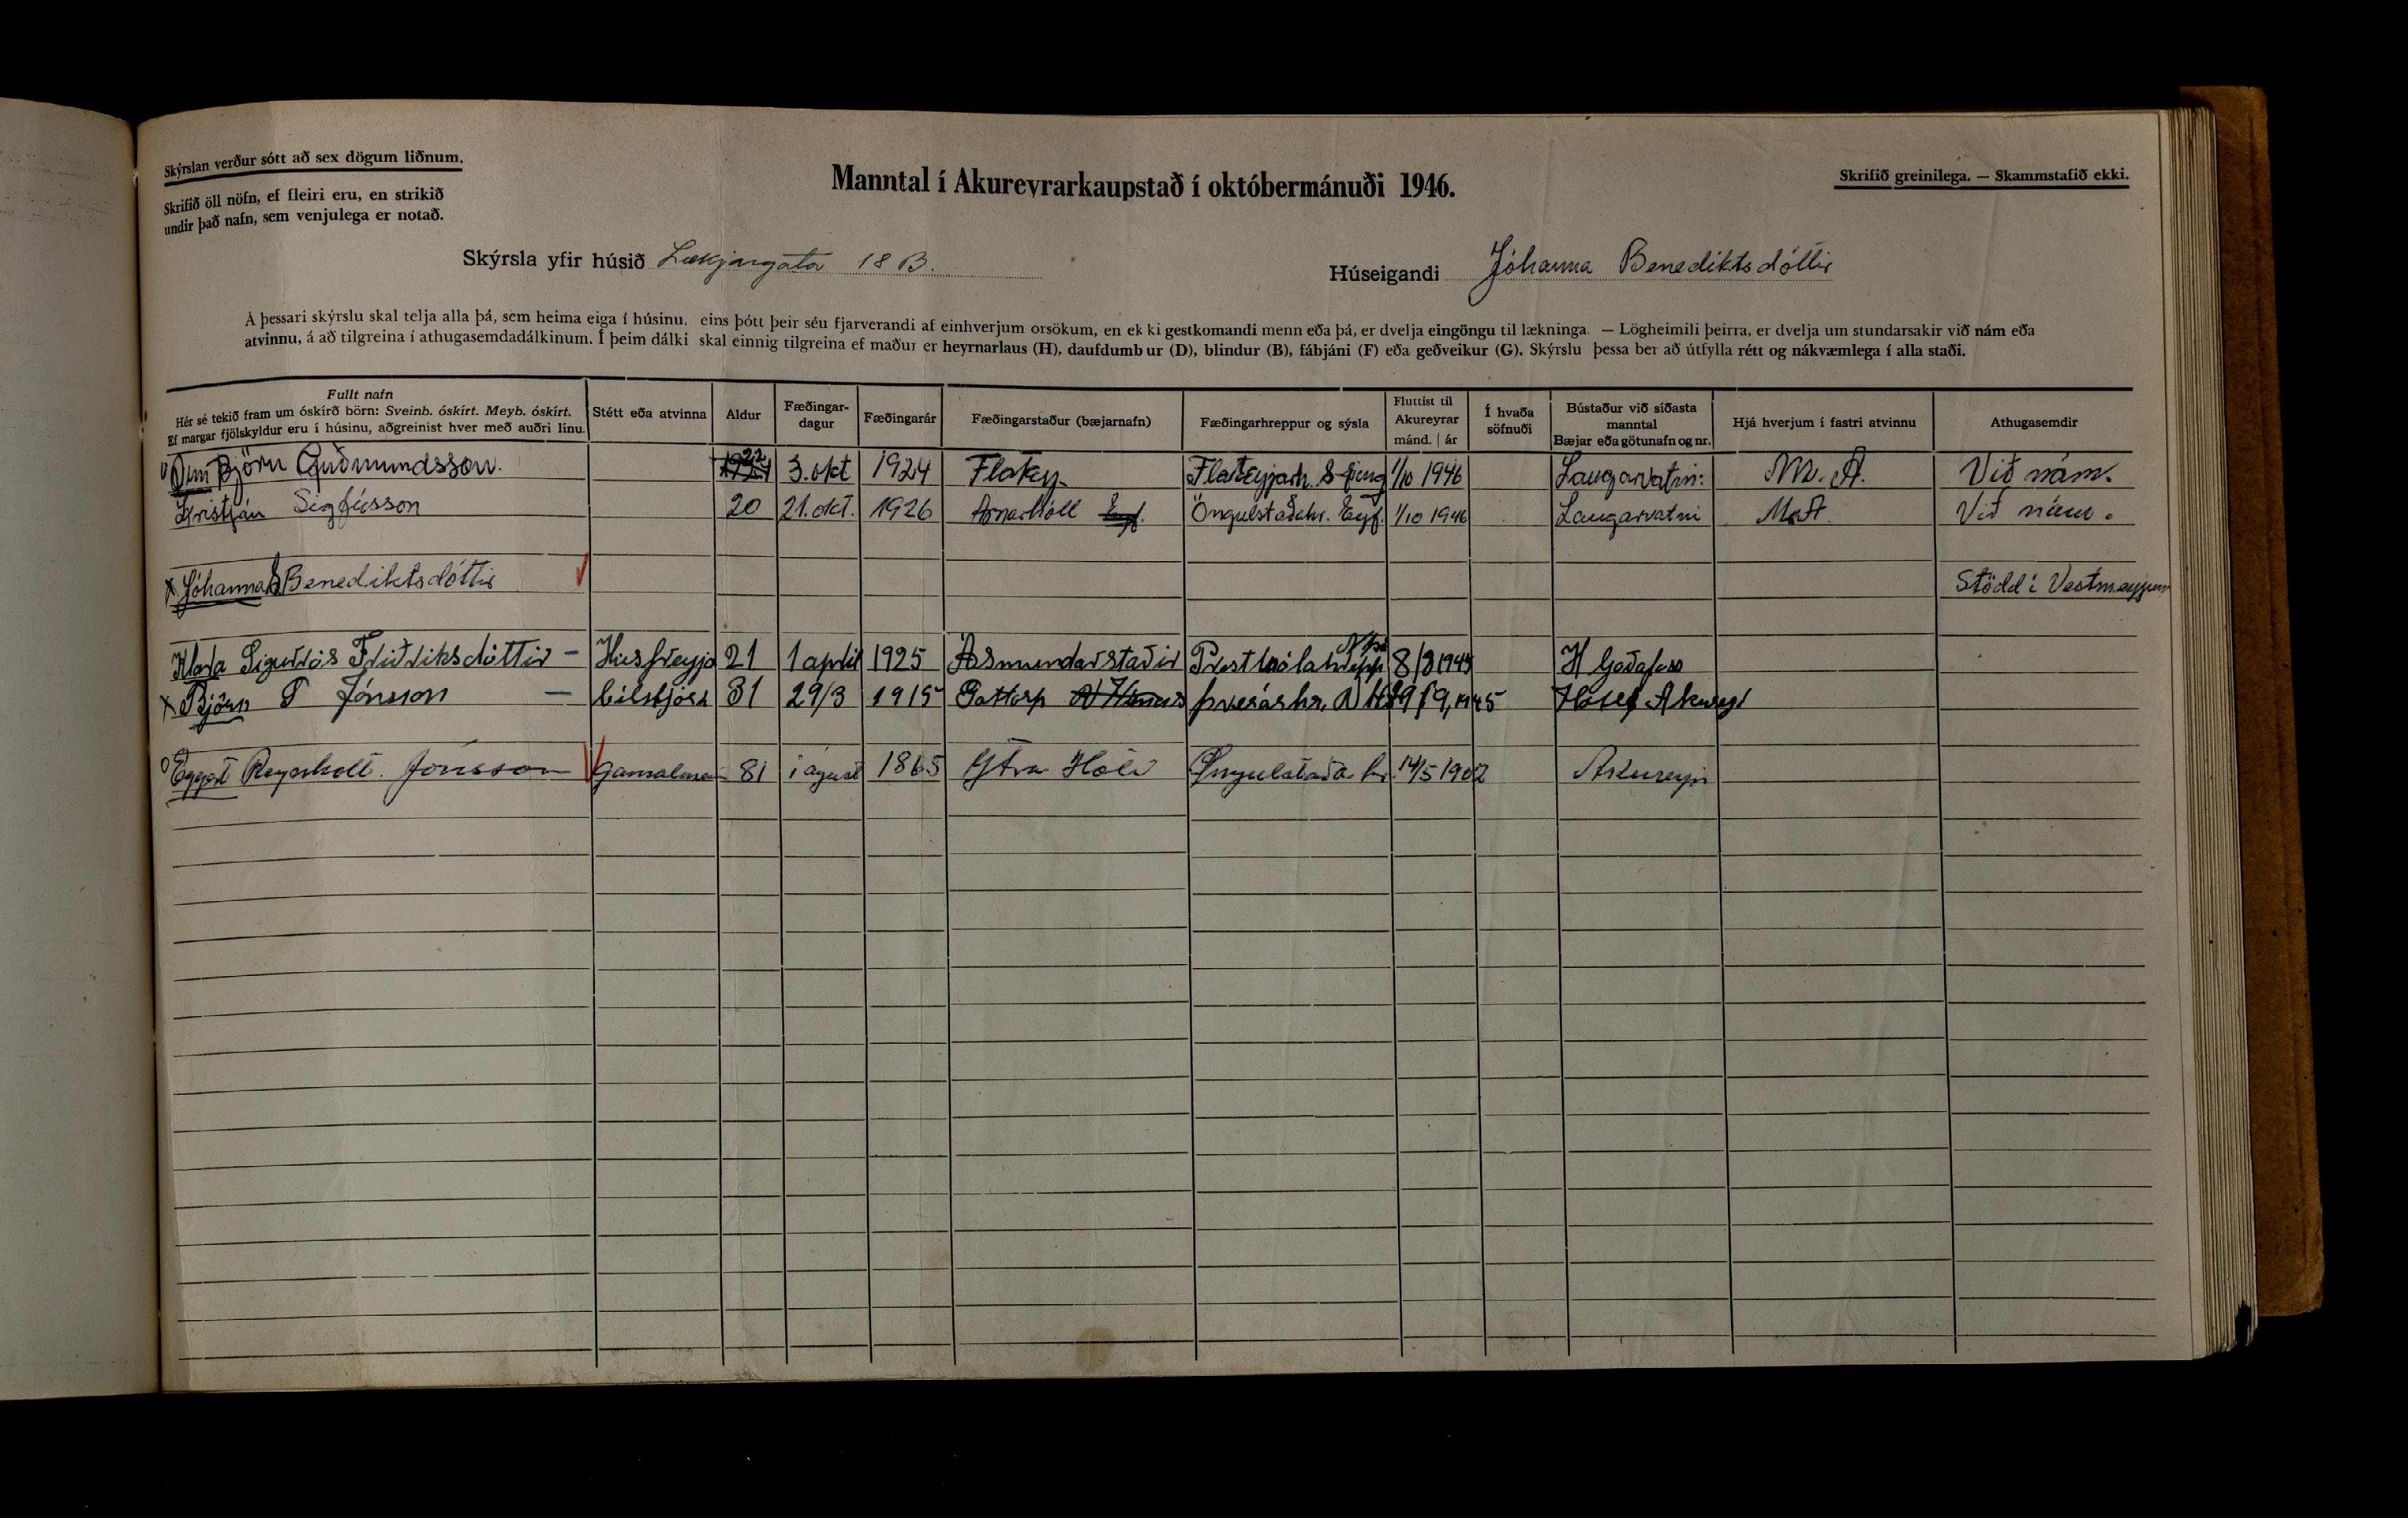 Skýrslan verður sótt að sex dögum liðnum.
Skrifið öll nöfn, ef fleiri eru, en strikið
undir það nafn, sem venjulega er notað.
Manntal í Akureyrarkaupstað í októbermánuði 1946.
Skrifið greinilega. — Skammstafið ekki.
Skýrsla yfir húsið Lækjargata 18 B.
Húseigandi Jóhanna Benediktsdóttir
Á þessari skýrslu skal telja alla þá, sem heima eiga í húsinu, eins þótt þeir séu fjarverandi af einhverjum orsökum, en ekki gestkomandi menn eða þá, er dvelja eingöngu til lækninga. — Lögheimili þeirra, er dvelja um stundarsakir við nám eða
atvinnu, á að tilgreina í athugasemdadálkinum. Í þeim dálki skal einnig tilgreina ef maður er heyrnarlaus (H), daufdumbur (D), blindur (B), fábjáni (F) eða geðveikur (G). Skýrslu þessa ber að útfylla rétt og nákvæmlega í alla staði.
Fullt nafn
Hér sé tekið fram um óskírð börn: Sveinb. óskírt. Meyb. óskírt.
Ef margar fjölskyldur eru í húsinu, aðgreinist hver með auðri línu.
Stétt eða atvinna
Aldur
Fæðingar-
dagur
Fæðingarár
Fæðingarstaður (bæjarnafn)
Fæðingarhreppur og sýsla
Fluttist til
Akureyrar
mánd. | ár
Í hvaða
söfnuði
Bústaður við síðasta
manntal
Bæjar eða götunafn og nr.
Hjá hverjum í fastri atvinnu
Athugasemdir
Björn Guðmundsson. 22 3. okt 1924 Flatey Flateyjarh. S-Þing 1/10 1946 Laugarvatni: M. A. Við nám.
Kristján Sigfússon 20 21. okt. 1926 Arnarhóll Eyf. Öngulstaðahr. Eyf. 1/10 1946 Laugarvatni M.A Við nám.
x Jóhanna Benediktsdóttir Stödd í Vestmeyjum
Klara Sigurrós Friðriksdóttir - Húsfreyja 21 1 apríl 1925 Ásmundarstaðir Presthólahrepp N Þi 8/8 1945 H Goðafoss
x Björn P Jónsson - bílstjóri 31 29/3 1915 Gottorp Þverárhr. 19/9, 1945 Hótel Akureyri
o Eggert Reynholt Jónsson Gamalmen 81 í ágúst 1865 Ytra Hóli Öngulstaða hr. 14/5 1902 Akureyri